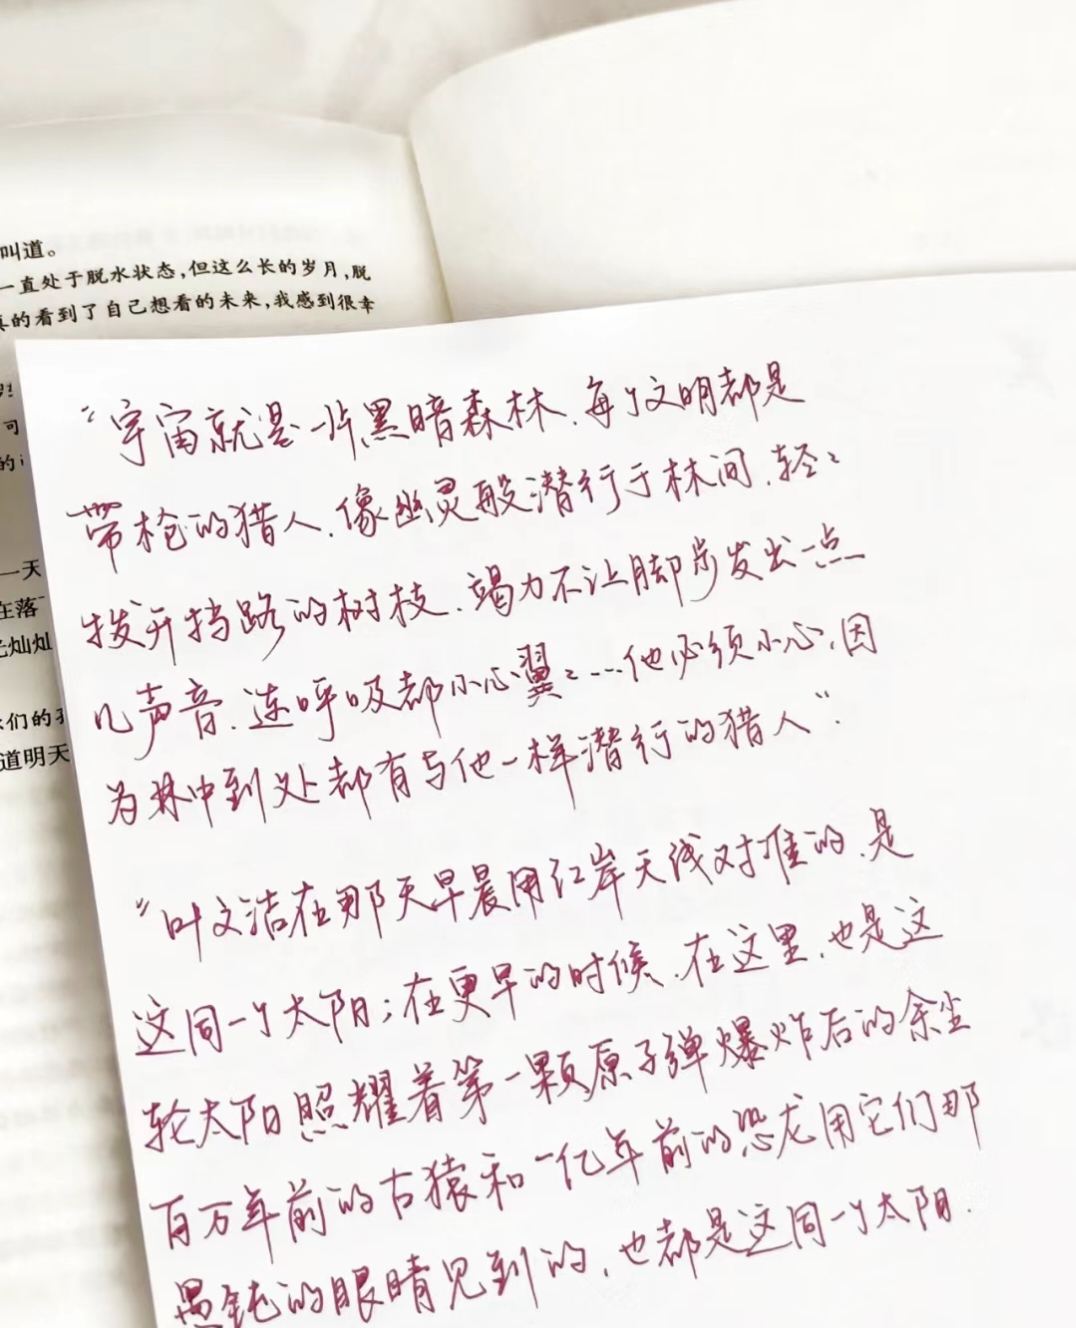 叫道。
一直处于脱水状态,但这么长的岁月,脱
真的看到了自己想看的未来,我感到很幸
可
的
一天
在落
光灿灿
们的
道明天
“宇宙就是一片黑暗森林.每个文明都是
带枪的猎人.像幽灵般潜行于林间.轻々
拨开挡路的树枝.竭力不让脚步发出一点
儿声音.连呼吸都小心翼々…他必须小心,因
为林中到处都有与他一样潜行的猎人”.
“叶文洁在那天早晨用红岸天线对准的.是
这同一个太阳;在更早的时候.在这里.也是这
轮太阳照耀着第一颗原子弹爆炸后的余尘
百万年前的古猿和一亿年前的恐龙用它们那
愚钝的眼睛见到的.也都是这同一个太阳.